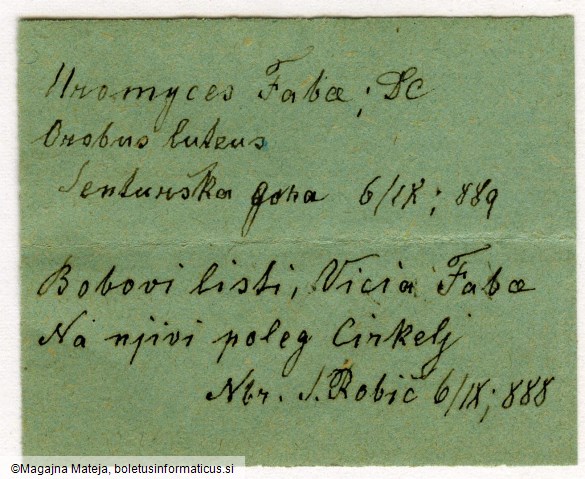 Uromyces Fabæ; DC
Orobus luteus
Šenturška gora 6/IX; 889
Bobovi listi, Vicia Fabæ
Na njivi poleg Cirkelj
Nbr. S. Robič 6/IX; 888
©Magajna Mateja, boletusinformaticus.si